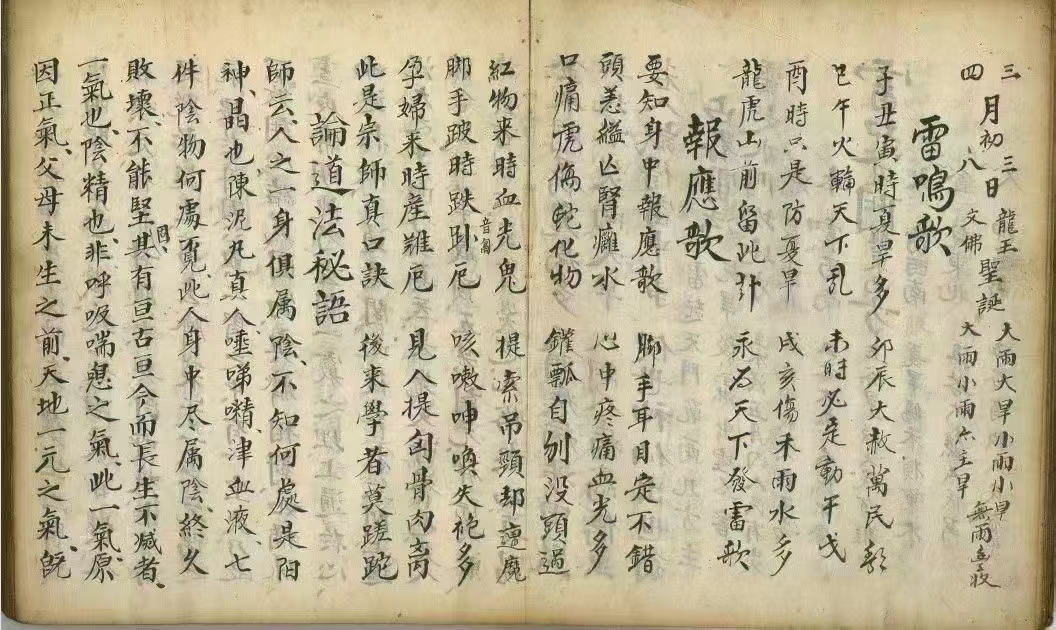 三月初三日 龍王聖誕 大雨大旱小雨小旱
四 八 文佛 大雨小雨六主旱 無雨豐收
雷鳴歌
子丑寅時夏旱多 卯辰大赦萬民歌
巳午火輪天下乱 未時必定動干戈
酉時只是防憂旱 戌亥傷禾雨水多
龍虎山前留此卦 永为天下發雷歌
報應歌
要知身中報應歌 脚手耳目定不錯
頭惹縊亡腎癱水 心中疼痛血光多
口痛虎傷蛇化物 鑵瓢自刎没頭過
紅物来時血光鬼 提索吊頸却遭魔
脚手跛時跌卧厄 音個 咳嗽呻喚失袍多
孕婦来時産難厄 見人提刮骨肉离
此是宗師真口訣 後来學者莫蹉跎
論道法秘語
師云、人之一身俱属陰、不知何處是阳
神、晶也、陳泥丸真人唾啼精津血液、七
件陰物何處覓、此人身中尽属陰、終久
敗壞、不能堅固、其有亘古亘今而長生不滅者、
一氣也、陰精也、非呼吸喘息之氣、此一氣、原
因正氣、父母未生之前、天地一元之氣、既